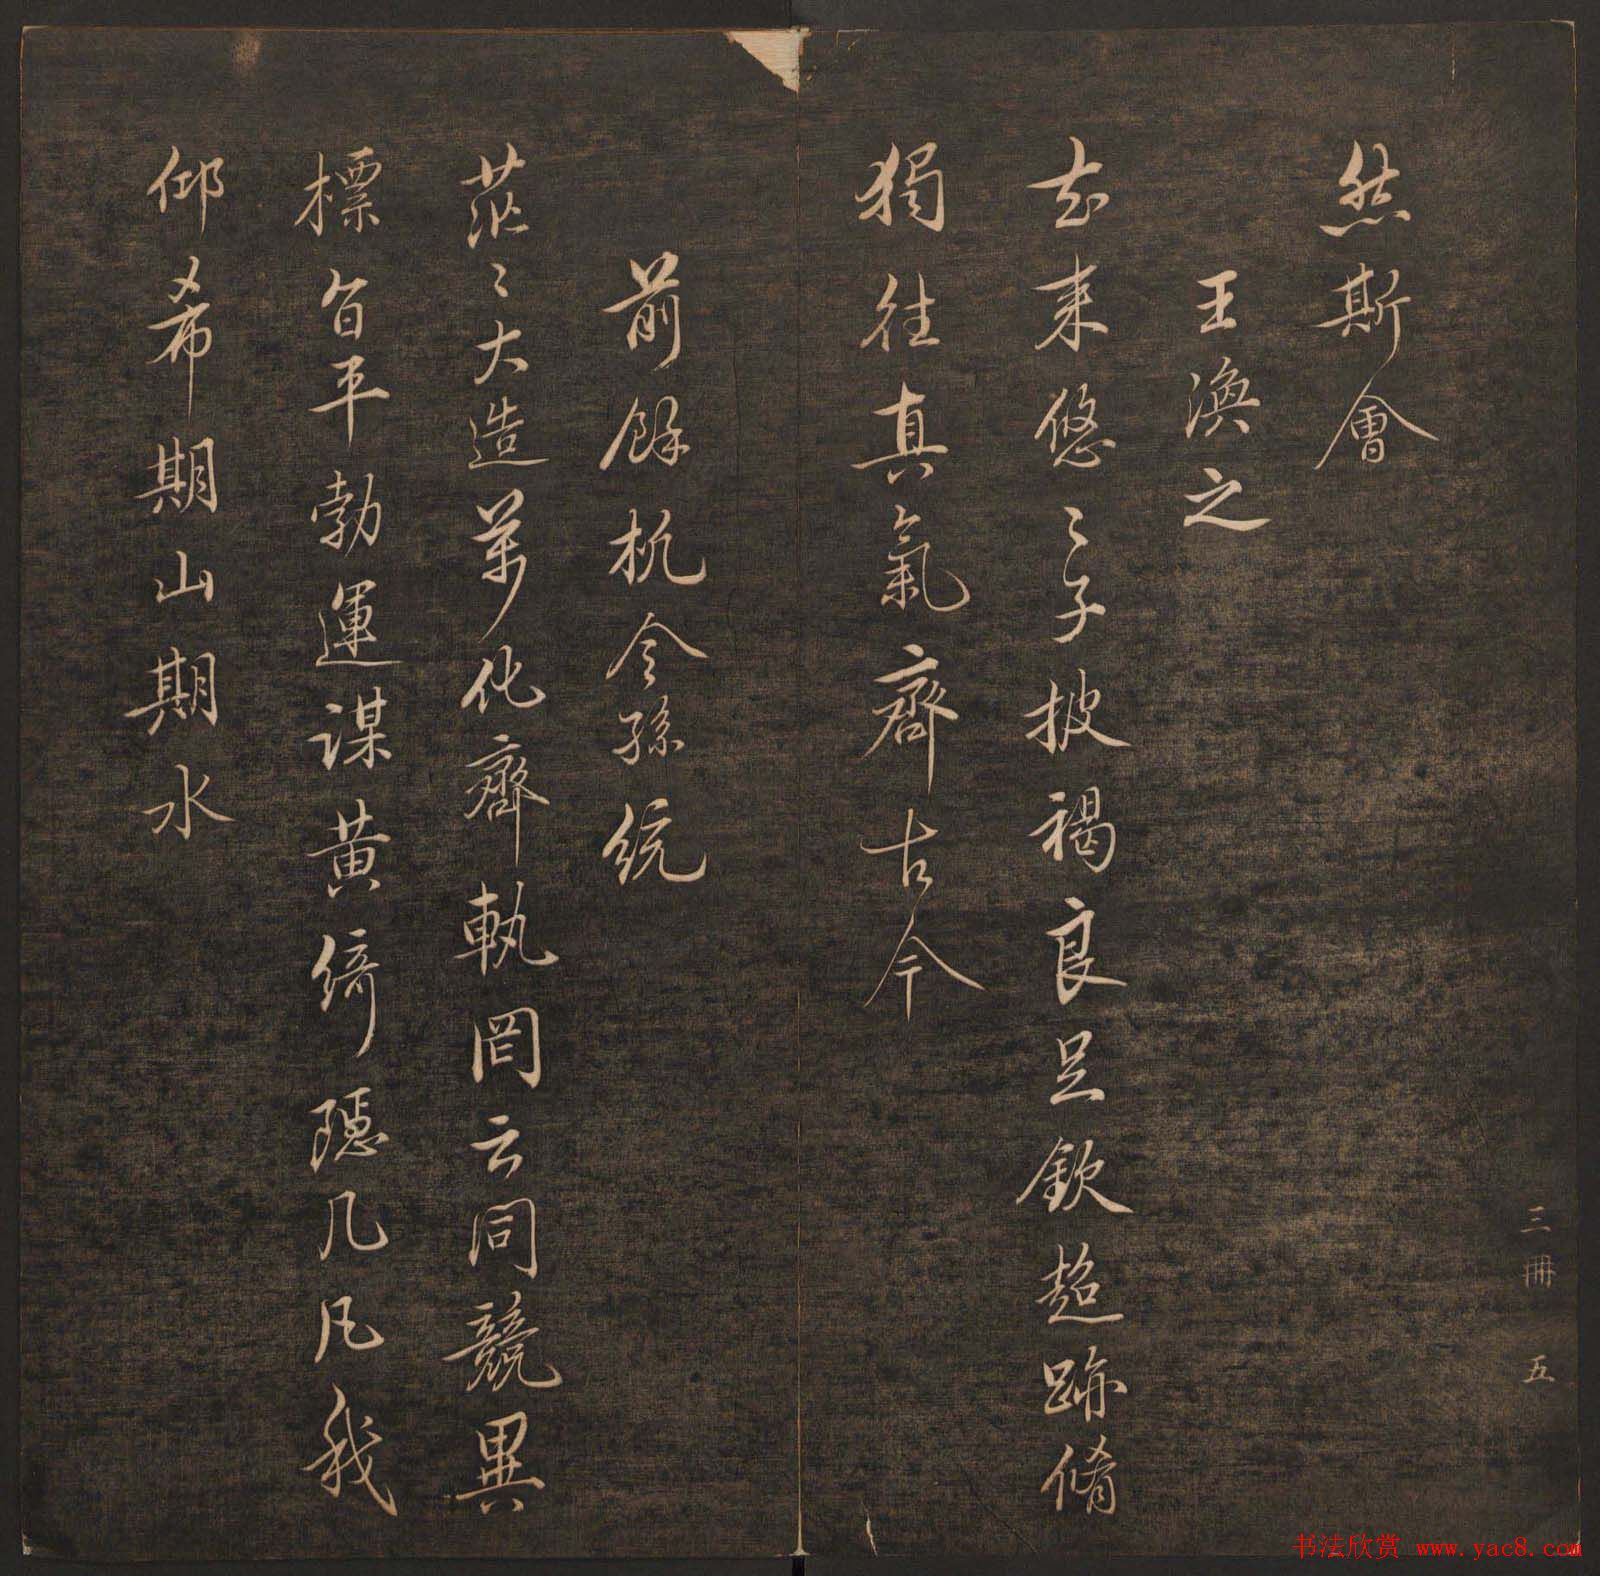 三冊 五
然斯會
王渙之
去来悠〻子披褐良足欽超跡脩
獨往真氣齊古今
前餘杭令孫統
茫〻大造萬化齊軌罔云同競異
標旨平勃運謀黄綺隱几凡我
仰希期山期水
书法欣赏 www.yac8.com